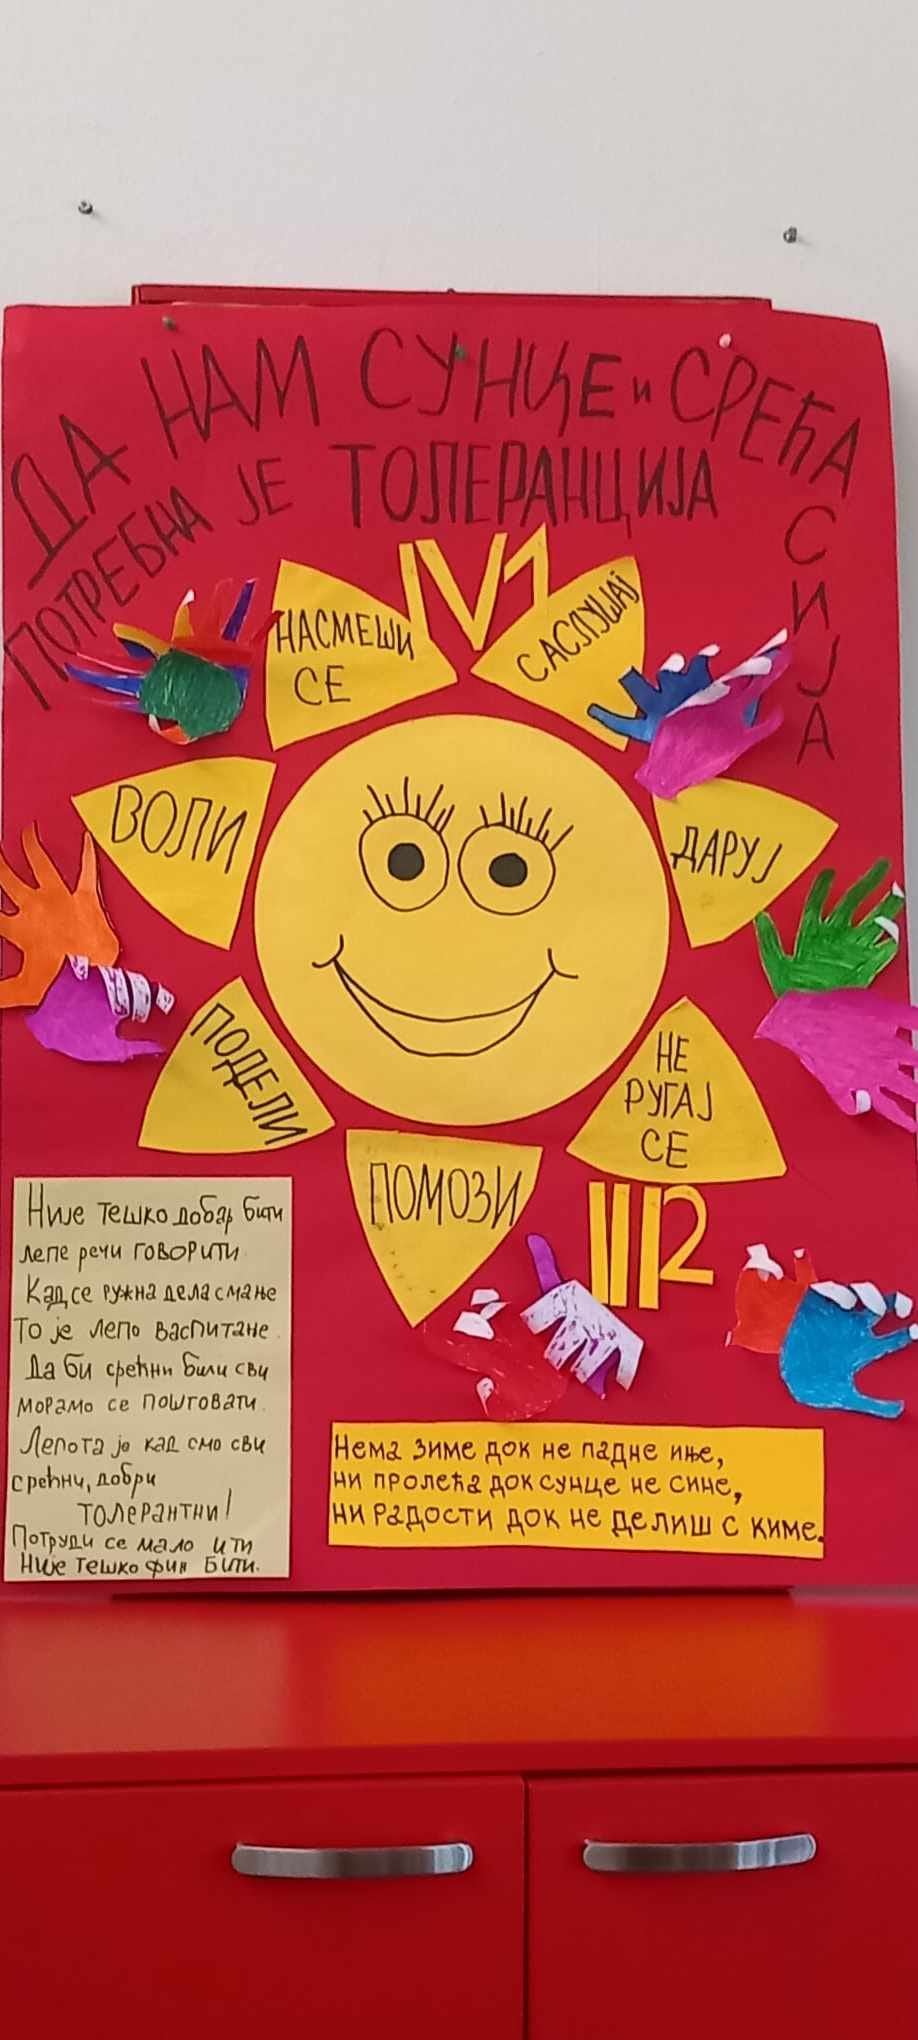 ДА НАМ СУНЦЕ и СРЕЋА СИЈА
ПОТРЕБНА ЈЕ ТОЛЕРАНЦИЈА
IV1
НАСМЕШИ
СЕ
САСЛУШАЈ
ВОЛИ
ДАРУЈ
ПОДЕЛИ
НЕ
РУГАЈ
СЕ
ПОМОЗИ
III2
Није тешко добар бити
лепе речи говорити
Кад се ружна дела смање
То је лепо васпитање.
Да би срећни били сви
морамо се поштовати.
Лепота је кад смо сви
срећни, добри
толерантни!
Потруди се мало и ти
Није тешко фин бити.
Нема зиме док не падне иње,
ни пролећа док сунце не сине,
ни радости док не делиш с киме.